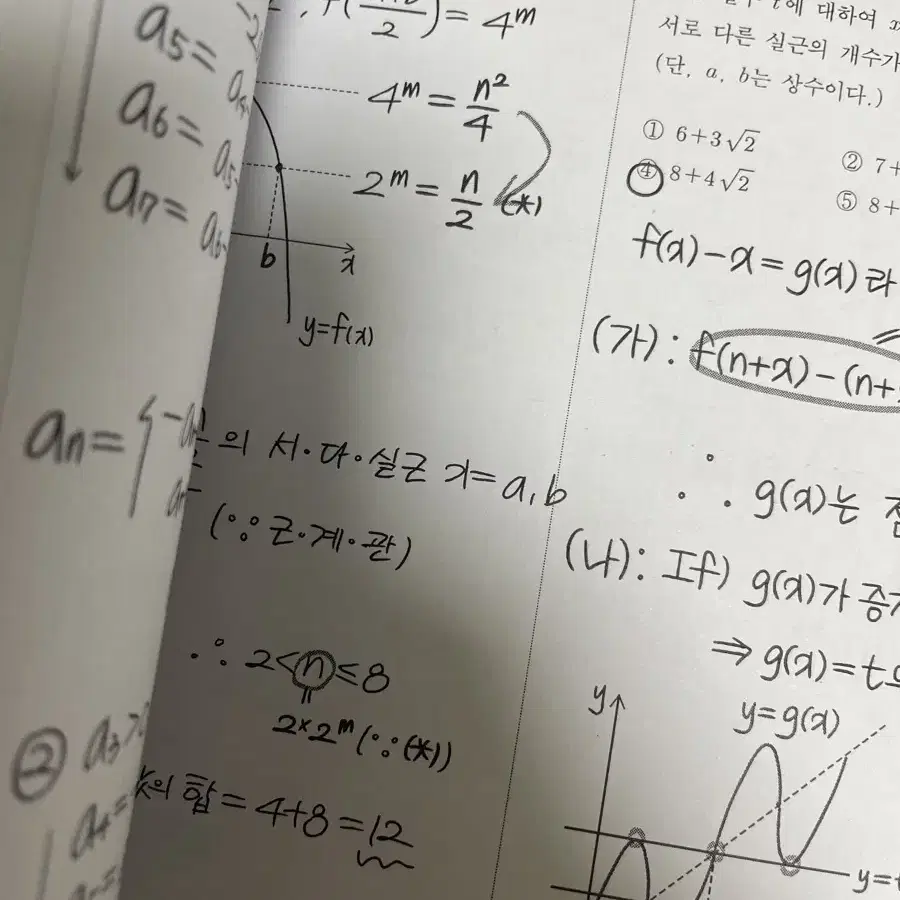 a₅ =
a₆ =
a₇ =
aₙ =
② a₃ >
a₄ =
= 4ᵐ
4ᵐ = n²/4
2ᵐ = n/2 (*)
b
x
y=f(x)
의 서·다·실근 x=a, b
(∵근·계·관)
∴ 2<n≤8
2×2ᵐ (∵(*))
의 합 = 4+8 = 12
에 대하여
서로 다른 실근의 개수가
(단, a, b는 상수이다.)
① 6+3√2
② 7+
④ 8+4√2
⑤ 8+
f(x)-x=g(x)라
(가): f(n+x)-(n+
∴ g(x)는
(나): If) g(x)가
⇒ g(x)=t
y
y=g(x)